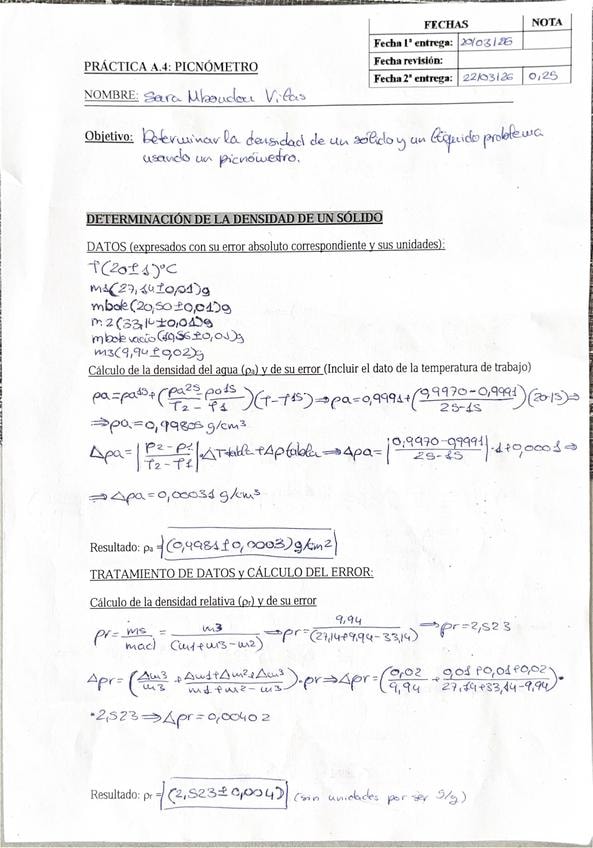 FECHAS NOTA
Fecha 1ª entrega: 20/03/26
Fecha revisión:
Fecha 2ª entrega: 22/03/26 0,25
PRÁCTICA A.4: PICNÓMETRO
NOMBRE: Sara
Objetivo: Determinar la densidad de un sólido y un líquido problema
usando un picnómetro.
DETERMINACIÓN DE LA DENSIDAD DE UN SÓLIDO
DATOS (expresados con su error absoluto correspondiente y sus unidades):
T(20±1)ºC
m1(27,14±0,01)g
mbote(20,50±0,01)g
m2(33,14±0,01)g
mbote vacío(10,56±0,01)g
m3(9,94±0,02)g
Cálculo de la densidad del agua (ρₐ) y de su error (Incluir el dato de la temperatura de trabajo)
ρa=ρa¹⁵+(ρa²⁵-ρa¹⁵/T2-T1)(T-T¹⁵)⇒ρa=0,9991+(0,9970-0,9991/25-15)(20-15)⇒
⇒ρa=0,99805 g/cm³
Δρa=|ρ2-ρ1/T2-T1|·ΔTtabla+Δρtabla⇒Δρa=|0,9970-0,9991/25-15|·1+0,0001⇒
⇒Δρa=0,00031 g/cm³
Resultado: ρₐ = (0,9981±0,0003)g/cm²
TRATAMIENTO DE DATOS y CÁLCULO DEL ERROR:
Cálculo de la densidad relativa (ρᵣ) y de su error
ρr=ms/macl=m3/(m1+m3-m2)⇒ρr=9,94/(27,14+9,94-33,14)⇒ρr=2,523
Δρr=(Δm3/m3+Δm1+Δm2+Δm3/m1+m2-m3)·ρr⇒Δρr=(0,02/9,94+0,01+0,01+0,02/27,14+33,14-9,94)·
·2,523⇒Δρr=0,00402
Resultado: ρᵣ = (2,523±0,004) (sin unidades por ser g/g)